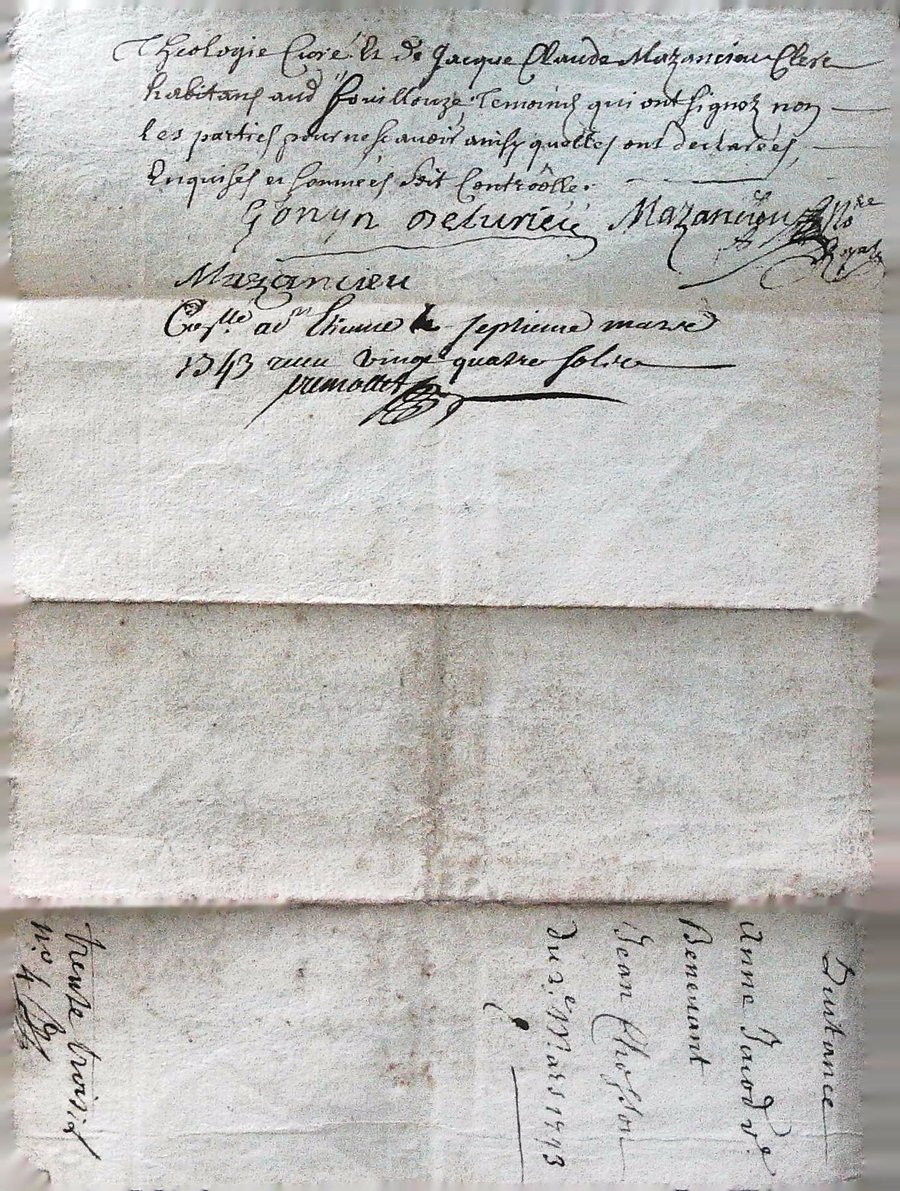 Theologie Curé Et de Jacque Claude Mazancieu Clerc
habitans aud Fouillouze Temoins qui ont signez non
les parties pour ne scavoir ainsy quelles ont declarées
Enquises et sommées soit Controolle.
Gonyn Mazancieu No.re
Royal
Mazancieu
Con.llé a St Etienne le septieme mars
1743 recu vingt quatre sols
Quitance
Anne Jacod v.e
Benevant
Jean Chosson
du 2.e Mars 1743
trente trois
n.o 4